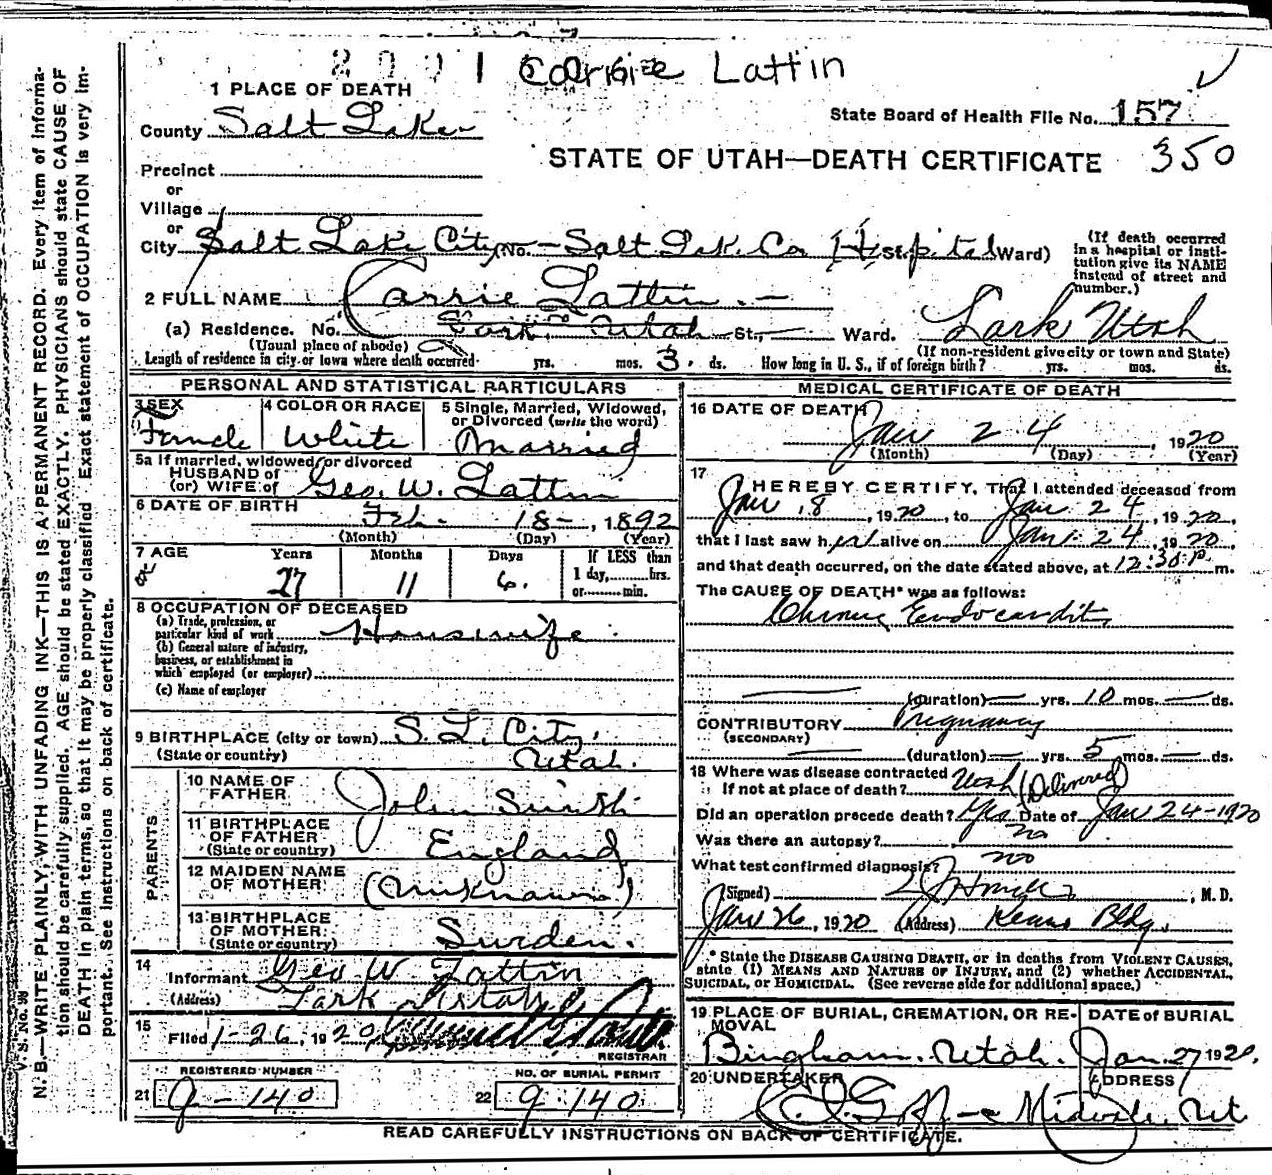 Carrie Lattin
1 PLACE OF DEATH
County Salt Lake
State Board of Health File No. 157
350
STATE OF UTAH—DEATH CERTIFICATE
Precinct
or
Village
or
City Salt Lake City No. — Salt Lak. Co Hospital St. Ward)
(If death occurred in a hospital or institution give its NAME instead of street and number.)
2 FULL NAME Carrie Lattin. —
(a) Residence. No. Lark Utah St., Ward. Lark Utah
(Usual place of abode) (If non-resident give city or town and State)
Length of residence in city or town where death occurred yrs. mos. 3. ds. How long in U. S., if of foreign birth? yrs. mos. ds.
PERSONAL AND STATISTICAL PARTICULARS
3 SEX Female
4 COLOR OR RACE White
5 Single, Married, Widowed, or Divorced (write the word) Married
5a If married, widowed, or divorced
HUSBAND of
(or) WIFE of Geo. W. Lattin
6 DATE OF BIRTH Feb. 18—, 1892
(Month) (Day) (Year)
7 AGE Years Months Days If LESS than
27 11 6. 1 day, hrs.
or min.
8 OCCUPATION OF DECEASED
(a) Trade, profession, or particular kind of work Housewife.
(b) General nature of industry, business, or establishment in which employed (or employer)
(c) Name of employer
9 BIRTHPLACE (city or town) S. L. City.
(State or country) Utah.
PARENTS
10 NAME OF FATHER John Smith
11 BIRTHPLACE OF FATHER (State or country) England
12 MAIDEN NAME OF MOTHER (Unknown)
13 BIRTHPLACE OF MOTHER (State or country) Sweden.
14 Informant Geo W. Lattin
(Address) Lark Utah
15 Filed 1-26, 1920
REGISTRAR
REGISTERED NUMBER NO. OF BURIAL PERMIT
21 9-140 22 9-140
MEDICAL CERTIFICATE OF DEATH
16 DATE OF DEATH Jan 24, 1920
(Month) (Day) (Year)
17 I HEREBY CERTIFY, That I attended deceased from
Jan, 8, 1920, to Jan 24, 1920,
that I last saw her alive on Jan. 24, 1920,
and that death occurred, on the date stated above, at 12:30 P. m.
The CAUSE OF DEATH* was as follows:
Chronic Endocarditis
(duration) — yrs. 10 mos. — ds.
CONTRIBUTORY Pregnancy
(SECONDARY)
(duration) — yrs. 5 mos. — ds.
18 Where was disease contracted
If not at place of death? Utah (Delivered)
Did an operation precede death? Yes Date of Jan 24-1920
Was there an autopsy? no
What test confirmed diagnosis? no
(Signed) , M. D.
Jan 26, 1920 (Address) Kearns Bldg.
* State the DISEASE CAUSING DEATH, or in deaths from VIOLENT CAUSES, state (1) MEANS AND NATURE OF INJURY, and (2) whether ACCIDENTAL, SUICIDAL, or HOMICIDAL. (See reverse side for additional space.)
19 PLACE OF BURIAL, CREMATION, OR REMOVAL DATE of BURIAL
Bingham. Utah. Jan. 27 1920.
20 UNDERTAKER ADDRESS
Goff — Midvale, Ut
READ CAREFULLY INSTRUCTIONS ON BACK OF CERTIFICATE.
V. S. No. 98
N. B.—WRITE PLAINLY, WITH UNFADING INK—THIS IS A PERMANENT RECORD. Every item of information should be carefully supplied. AGE should be stated EXACTLY. PHYSICIANS should state CAUSE OF DEATH in plain terms, so that it may be properly classified. Exact statement of OCCUPATION is very important. See instructions on back of certificate.